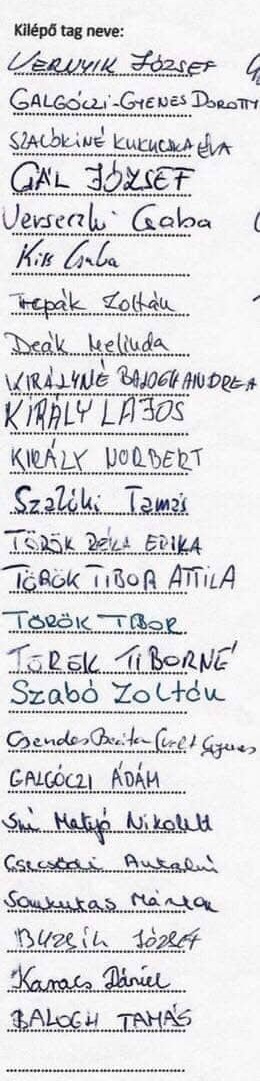 Kilépő tag neve:
VERNYIK JÓZSEF
GALGÓCZI-GYENES DOROTTY
SZALÓKINÉ KUKUCSKA ÉVA
GÁL JÓZSEF
Verseczki Csaba
Kis Csaba
Trepák Zoltán
Deák Melinda
KIRÁLYNÉ BALOGH ANDREA
KIRÁLY LAJOS
KIRÁLY NORBERT
Szalóki Tamás
TÖRÖK RÉKA ERIKA
TÖRÖK TIBOR ATTILA
TÖRÖK TIBOR
TÖRÖK TIBORNÉ
Szabó Zoltán
Csendes Gyenes
GALGÓCZI ÁDÁM
Nikolett
Antalné
Márton
JÓZSEF
Karacs Dániel
BALOGH TAMÁS